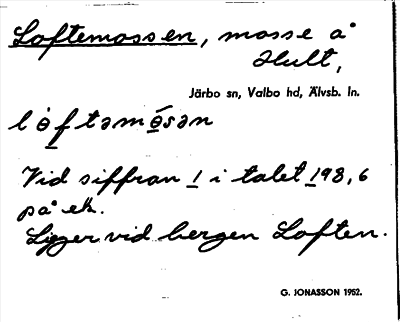 Loftemossen, mosse å
Hult,
Järbo sn, Valbo hd, Älvsb. ln.
Vid siffran 1 i talet 198,6
på ek.
Ligger vid bergen Loften.
G. JONASSON 1952.